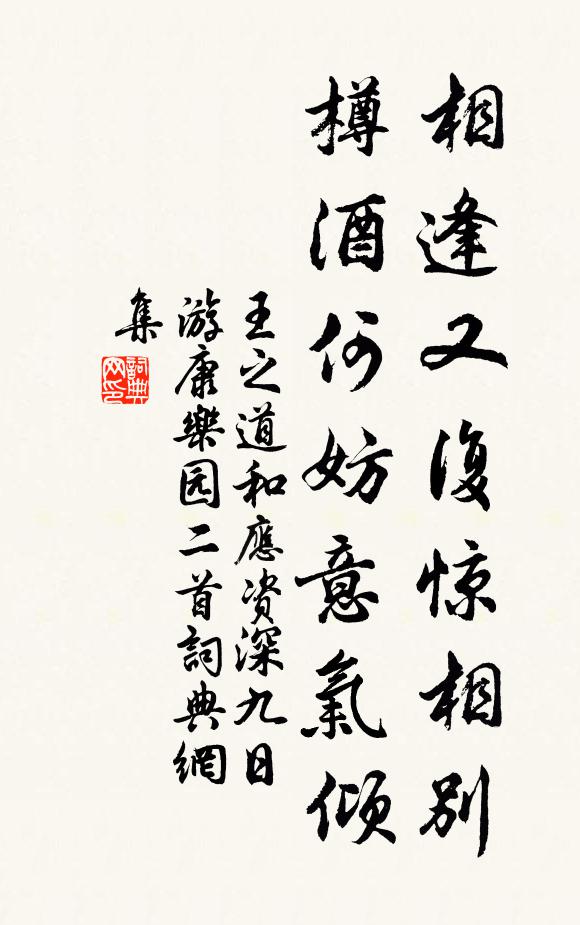 相逢又復惊相别
樽酒何妨意氣傾
王之道和應资深九日
游康樂园二首詞典網
集
詞典
网印